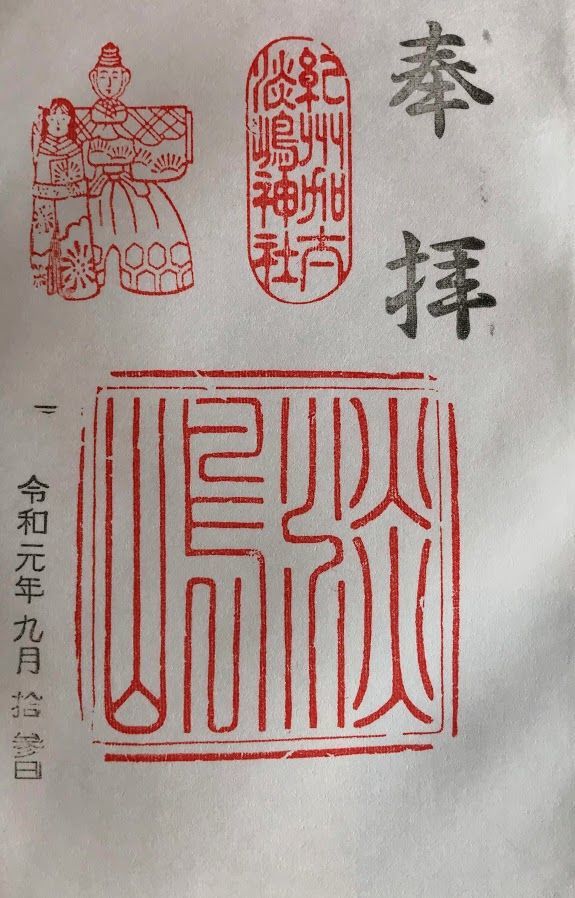 奉拝
紀州加太
淡嶋神社
淡嶋
令和元年九月拾参日